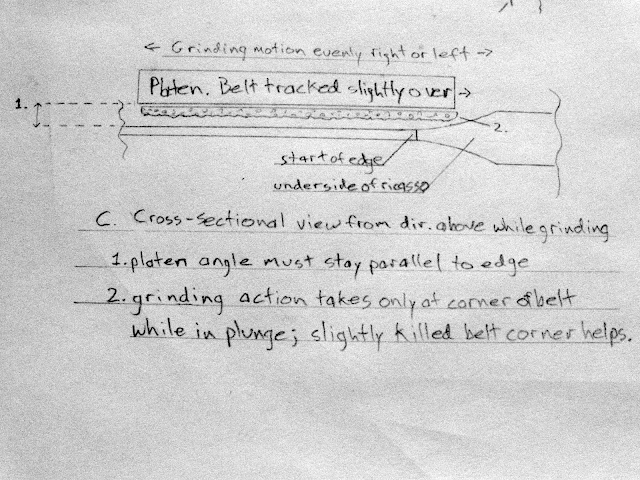 ← Grinding motion evenly right or left →
Platen. Belt tracked slightly over →
1.
2.
start of edge
underside of ricasso
C. Cross-sectional view from dir. above while grinding
1. platen angle must stay parallel to edge
2. grinding action takes only at corner of belt
while in plunge; slightly killed belt corner helps.